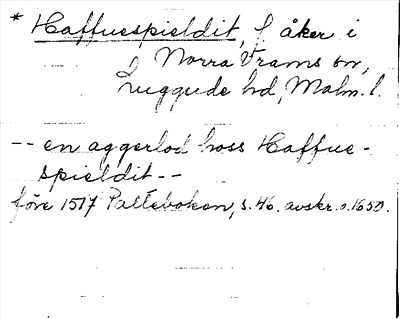 * Haffuespieldit, f åker i
Norra Vrams sn,
Luggude hd, Malm. l.
-- en aggerlod hoss Haffue-
spieldit --
före 1517 Palteboken, s. 46. avskr. o. 1650.